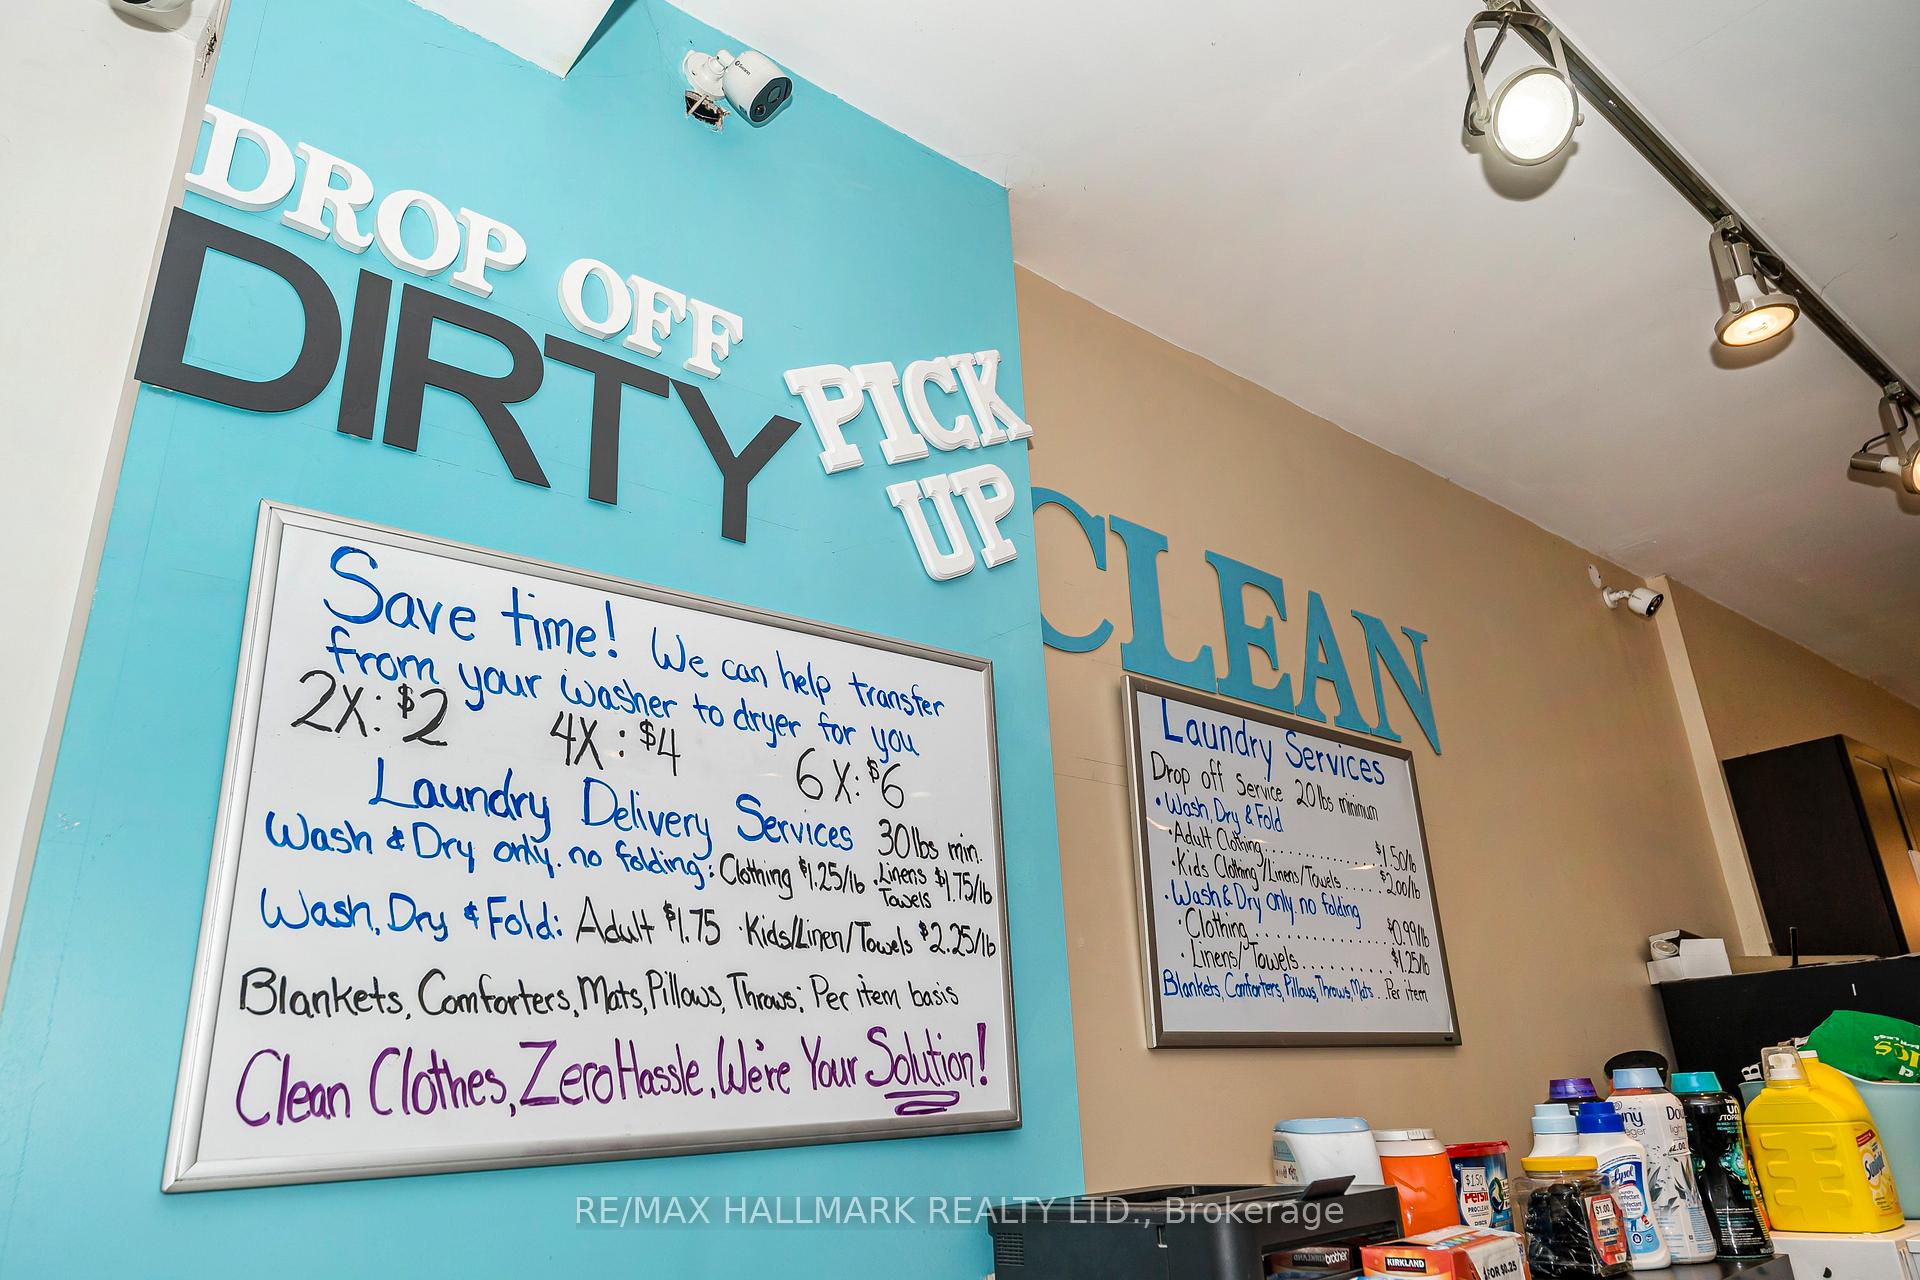 DROP OFF
DIRTY
PICK
UP
CLEAN
Save time! We can help transfer
from your washer to dryer for you
2X: $2 4X: $4 6X: $6
Laundry Delivery Services 30lbs min.
Wash & Dry only. no folding: Clothing $1.25/lb . Linens Towels $1.75/lb
Wash, Dry & Fold: Adult $1.75 · Kids/Linen/Towels $2.25/lb
Blankets, Comforters, Mats, Pillows, Throws; Per item basis
Clean Clothes, Zero Hassle, We're Your Solution!
Laundry Services
Drop off service 20 lbs minimum
• Wash, Dry & Fold
• Adult Clothing.................. $1.50/lb
• Kids Clothing/Linens/Towels ...... $2.00/lb
• Wash & Dry only. no folding
• Clothing.................. $0.99/lb
• Linens/Towels............ $1.25/lb
Blankets, Comforters, Pillows, Throws, Mats...Per item
$1.50
Persil
PROCLEAN
DISCS
Lysol
$1.00
brother
KIRKLAND
FOR $0.25
RE/MAX HALLMARK REALTY LTD., Brokerage